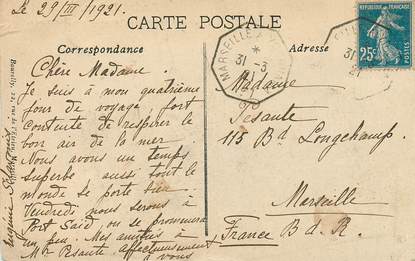 Le 29/III/1921.
CARTE POSTALE
Correspondance
Adresse
Chère Madame.
Je suis à mon quatrième
jour de voyage, fort
contente de respirer le
bon air de la mer
Nous avons un temps
superbe aussi tout le
monde se porte bien
Vendredi nous serons à
Port Saïd, ou se promenera
un peu. Mes amitiés à
Mr Pesante. Affectueusement
à vous
Eugénie
Madame
Pesante
115 Bd Longchamp.
Marseille
France B. d. R.
MARSEILLE
31 -3
21
REPUBLIQUE FRANÇAISE
25c
POSTES
31
21